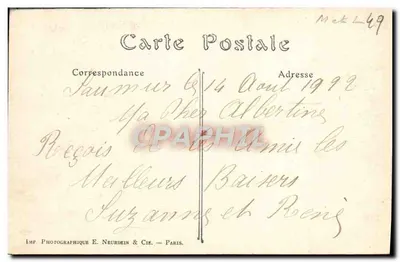 M et L 49
Carte Postale
Correspondance
Adresse
Saumur le 14 Aout 1912
Ma Cher Albertine
Reçois de tes Amie les
Meilleurs Baisers
Suzanne et René
Imp. Photographique E. Neurdein & Cie. — Paris.